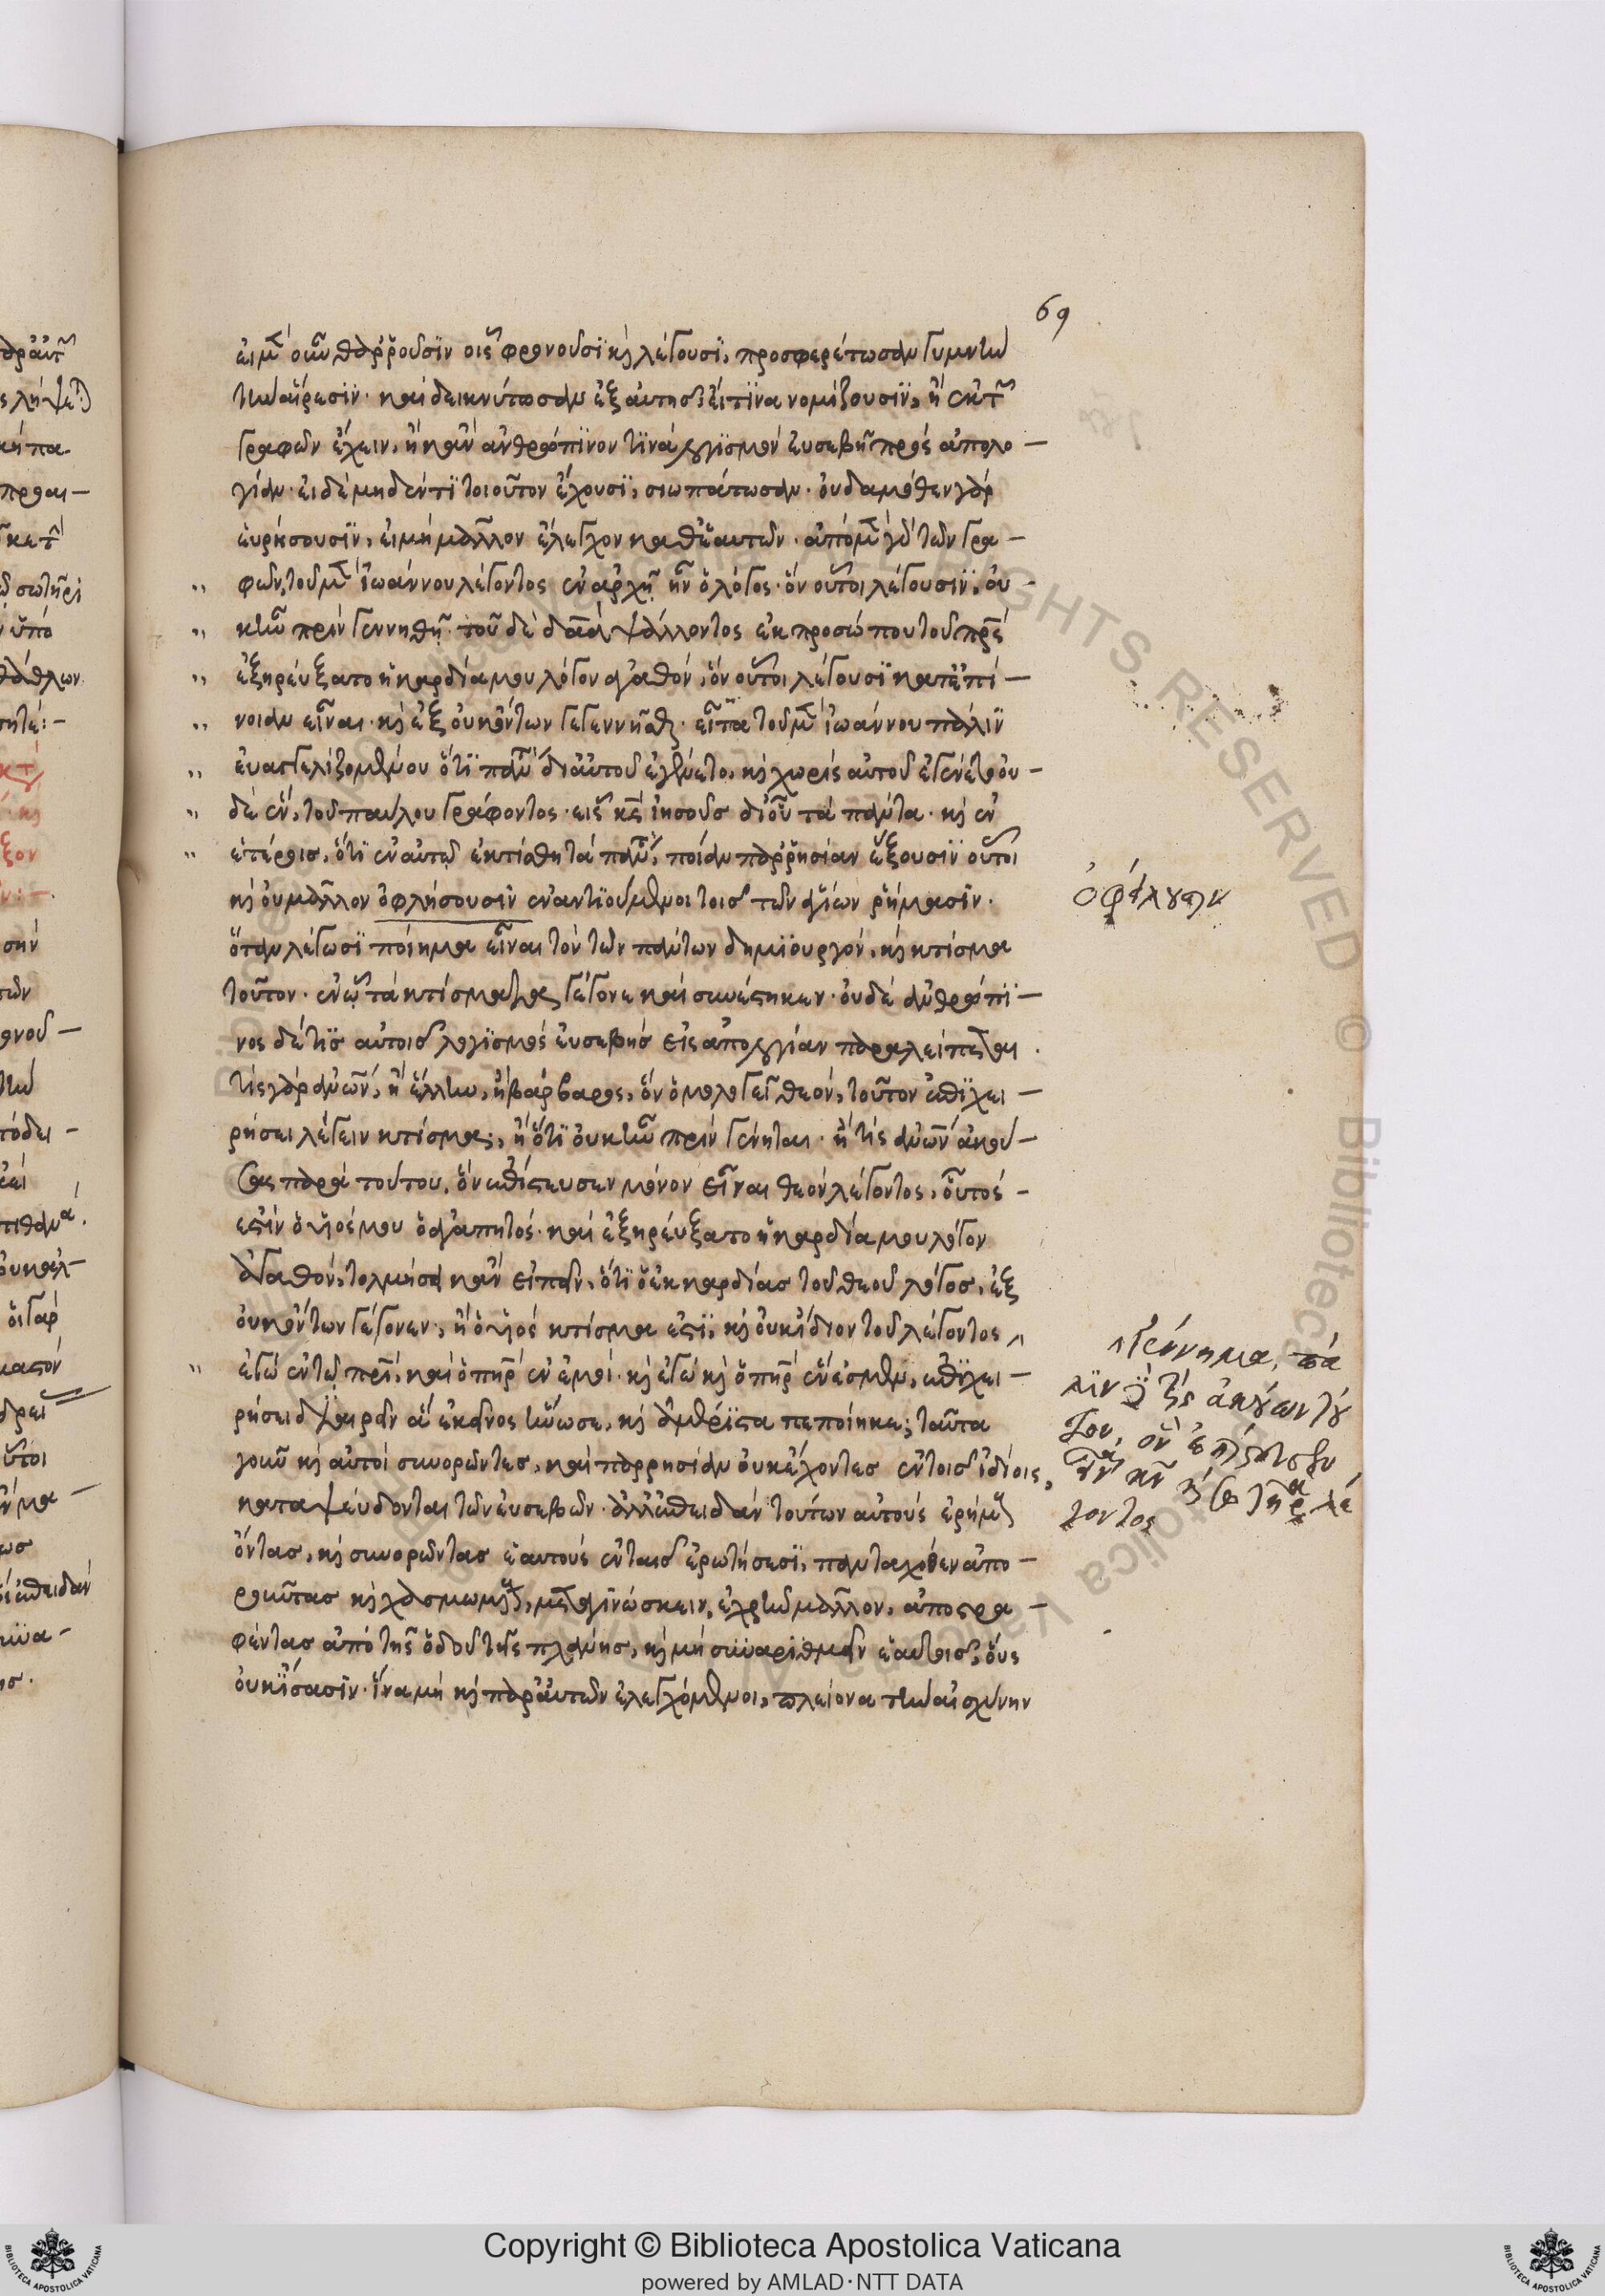 69
εἰ μὲν οὖν θαρροῦσιν οἷς φρονοῦσι καὶ λέγουσι, προσφερέτωσαν γυμνὴν
τὴν αἵρεσιν· καὶ δεικνύτωσαν ἐξ αὐτῆς εἴ τινα νομίζουσιν, ἢ ἐκ τῶν
γραφῶν ἔχειν, ἢ κἂν ἀνθρώπινον τινὰ λογισμὸν εὐσεβῆ πρὸς ἀπολο-
γίαν· εἰ δὲ μηδέν τι τοιοῦτον ἔχουσι, σιωπάτωσαν· οὐδαμόθεν γὰρ
εὑρήσουσιν, εἰ μὴ μᾶλλον ἔλεγχον καθ' ἑαυτῶν· ἀπὸ μὲν γὰρ τῶν γρα-
φῶν, τοῦ μὲν ἰωάννου λέγοντος ἐν ἀρχῇ ἦν ὁ λόγος· ὃν οὗτοι λέγουσιν, οὐ-
κ ἦν πρὶν γεννηθῇ· τοῦ δὲ δαδ ψάλλοντος ἐκ προσώπου τοῦ πρς
ἐξηρεύξατο ἡ καρδία μου λόγον ἀγαθόν, ὃν οὗτοι λέγουσι κατ' ἐπί-
νοιαν εἶναι· καὶ ἐξ οὐκ ὄντων γεγεννῆσθαι· εἶτα τοῦ μὲν ἰωάννου πάλιν
εὐαγγελιζομένου ὅτι πάντα δι' αὐτοῦ ἐγένετο, καὶ χωρὶς αὐτοῦ ἐγένετο οὐ-
δὲ ἕν, τοῦ παύλου γράφοντος· εἷς κς ἰησοῦς δι' οὗ τὰ πάντα· καὶ ἐν
ἑτέροις, ὅτι ἐν αὐτῷ ἐκτίσθη τὰ πάντα, ποίαν παρρησίαν ἕξουσιν οὗτοι
καὶ οὐ μᾶλλον ὀφλήσουσιν ἐναντιούμενοι τοῖς τῶν ἁγίων ῥήμασιν·
ὅταν λέγωσι ποίημα εἶναι τὸν τῶν πάντων δημιουργόν, καὶ κτίσμα
τοῦτον· ἐν ᾧ τὰ κτίσματα γέγονε καὶ συνέστηκεν· οὐδὲ ἀνθρώπι-
νος δὲ τις αὐτοῖς λογισμὸς εὐσεβὴς εἰς ἀπολογίαν παραλείπεται.
τίς γὰρ ἀνων, ἢ ἕλλην, ἢ βάρβαρος, ὃν ὁμολογεῖ θεόν, τοῦτον ἐπιχει-
ρήσει λέγειν κτίσμα; ἢ ὅτι οὐκ ἦν πρὶν γένηται· ἢ τίς ἀνων ἀκού-
σας παρὰ τούτου, ὃν ἐπίστευσεν μόνον εἶναι θεὸν λέγοντος, οὗτός
ἐστιν ὁ υἱός μου ὁ ἀγαπητός· καὶ ἐξηρεύξατο ἡ καρδία μου λόγον
ἀγαθόν, τολμήσει κἂν εἰπεῖν, ὅτι ὁ ἐκ καρδίας τοῦ θεοῦ λόγος, ἐξ
οὐκ ὄντων γέγονεν, ἢ ὁ υἱὸς κτίσμα ἐστὶ, καὶ οὐκ ἴδιον τοῦ λέγοντος
ἐγὼ ἐν τῷ πρὶ, καὶ ὁ πηρ ἐν ἐμοί· καὶ ἐγὼ καὶ ὁ πηρ ἕν ἐσμεν, ἐπιχει-
ρήσει διαιρεῖν ἃ ἐκεῖνος ἥνωσε, καὶ ἀμέριστα πεποίηκε; ταῦτα
γοῦν καὶ αὐτοὶ συνορῶντες, καὶ παρρησίαν οὐκ ἔχοντες ἐν τοῖς ἰδίοις,
καταψεύδονται τῶν εὐσεβῶν· ἀλλ' ἐπειδὰν τούτων αὐτοὺς ἐρήμους
ὄντας, καὶ συνορῶντας ἑαυτοὺς ἐν ταῖς ἐρωτήσεσι, πανταχόθεν ἀπο-
ροῦντας καὶ χασμωμένους, μεταγινώσκειν, ἐχρῆν μᾶλλον, ἀποστρα-
φέντας ἀπὸ τῆς ὁδοῦ τῆς πλάνης, καὶ μὴ συναριθμεῖν ἑαυτοῖς, οὓς
οὐκ ἴσασιν· ἵνα μὴ καὶ παρ' αὐτῶν ἐλεγχόμενοι, πλείονα τὴν αἰσχύνην
γέννημα, πά
λιν